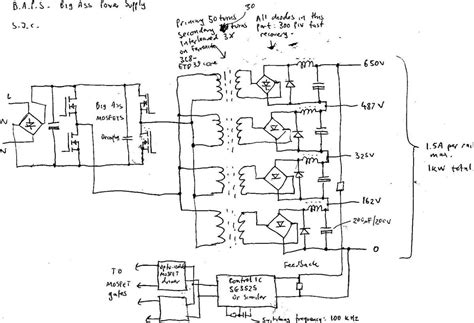 B.A.P.S. - Big Ass Power Supply
S.J.C.
30
Primary 50 turns
Secondary turns
Interleaved 3x
on ferrite
3C8-
ETD 39 core
All diodes in this
part: 300 PIV fast
recovery.
L
N
Big Ass
MOSFETS
650V
487V
325V
162V
0
1.5A per rail
max.
1KW total
200uF/200V
Feedback
TO
MOSFET
gates
Opto-coupled
MOSFET
driver
Control IC
SG3525
Or similar
Switching frequency: 100 KHz